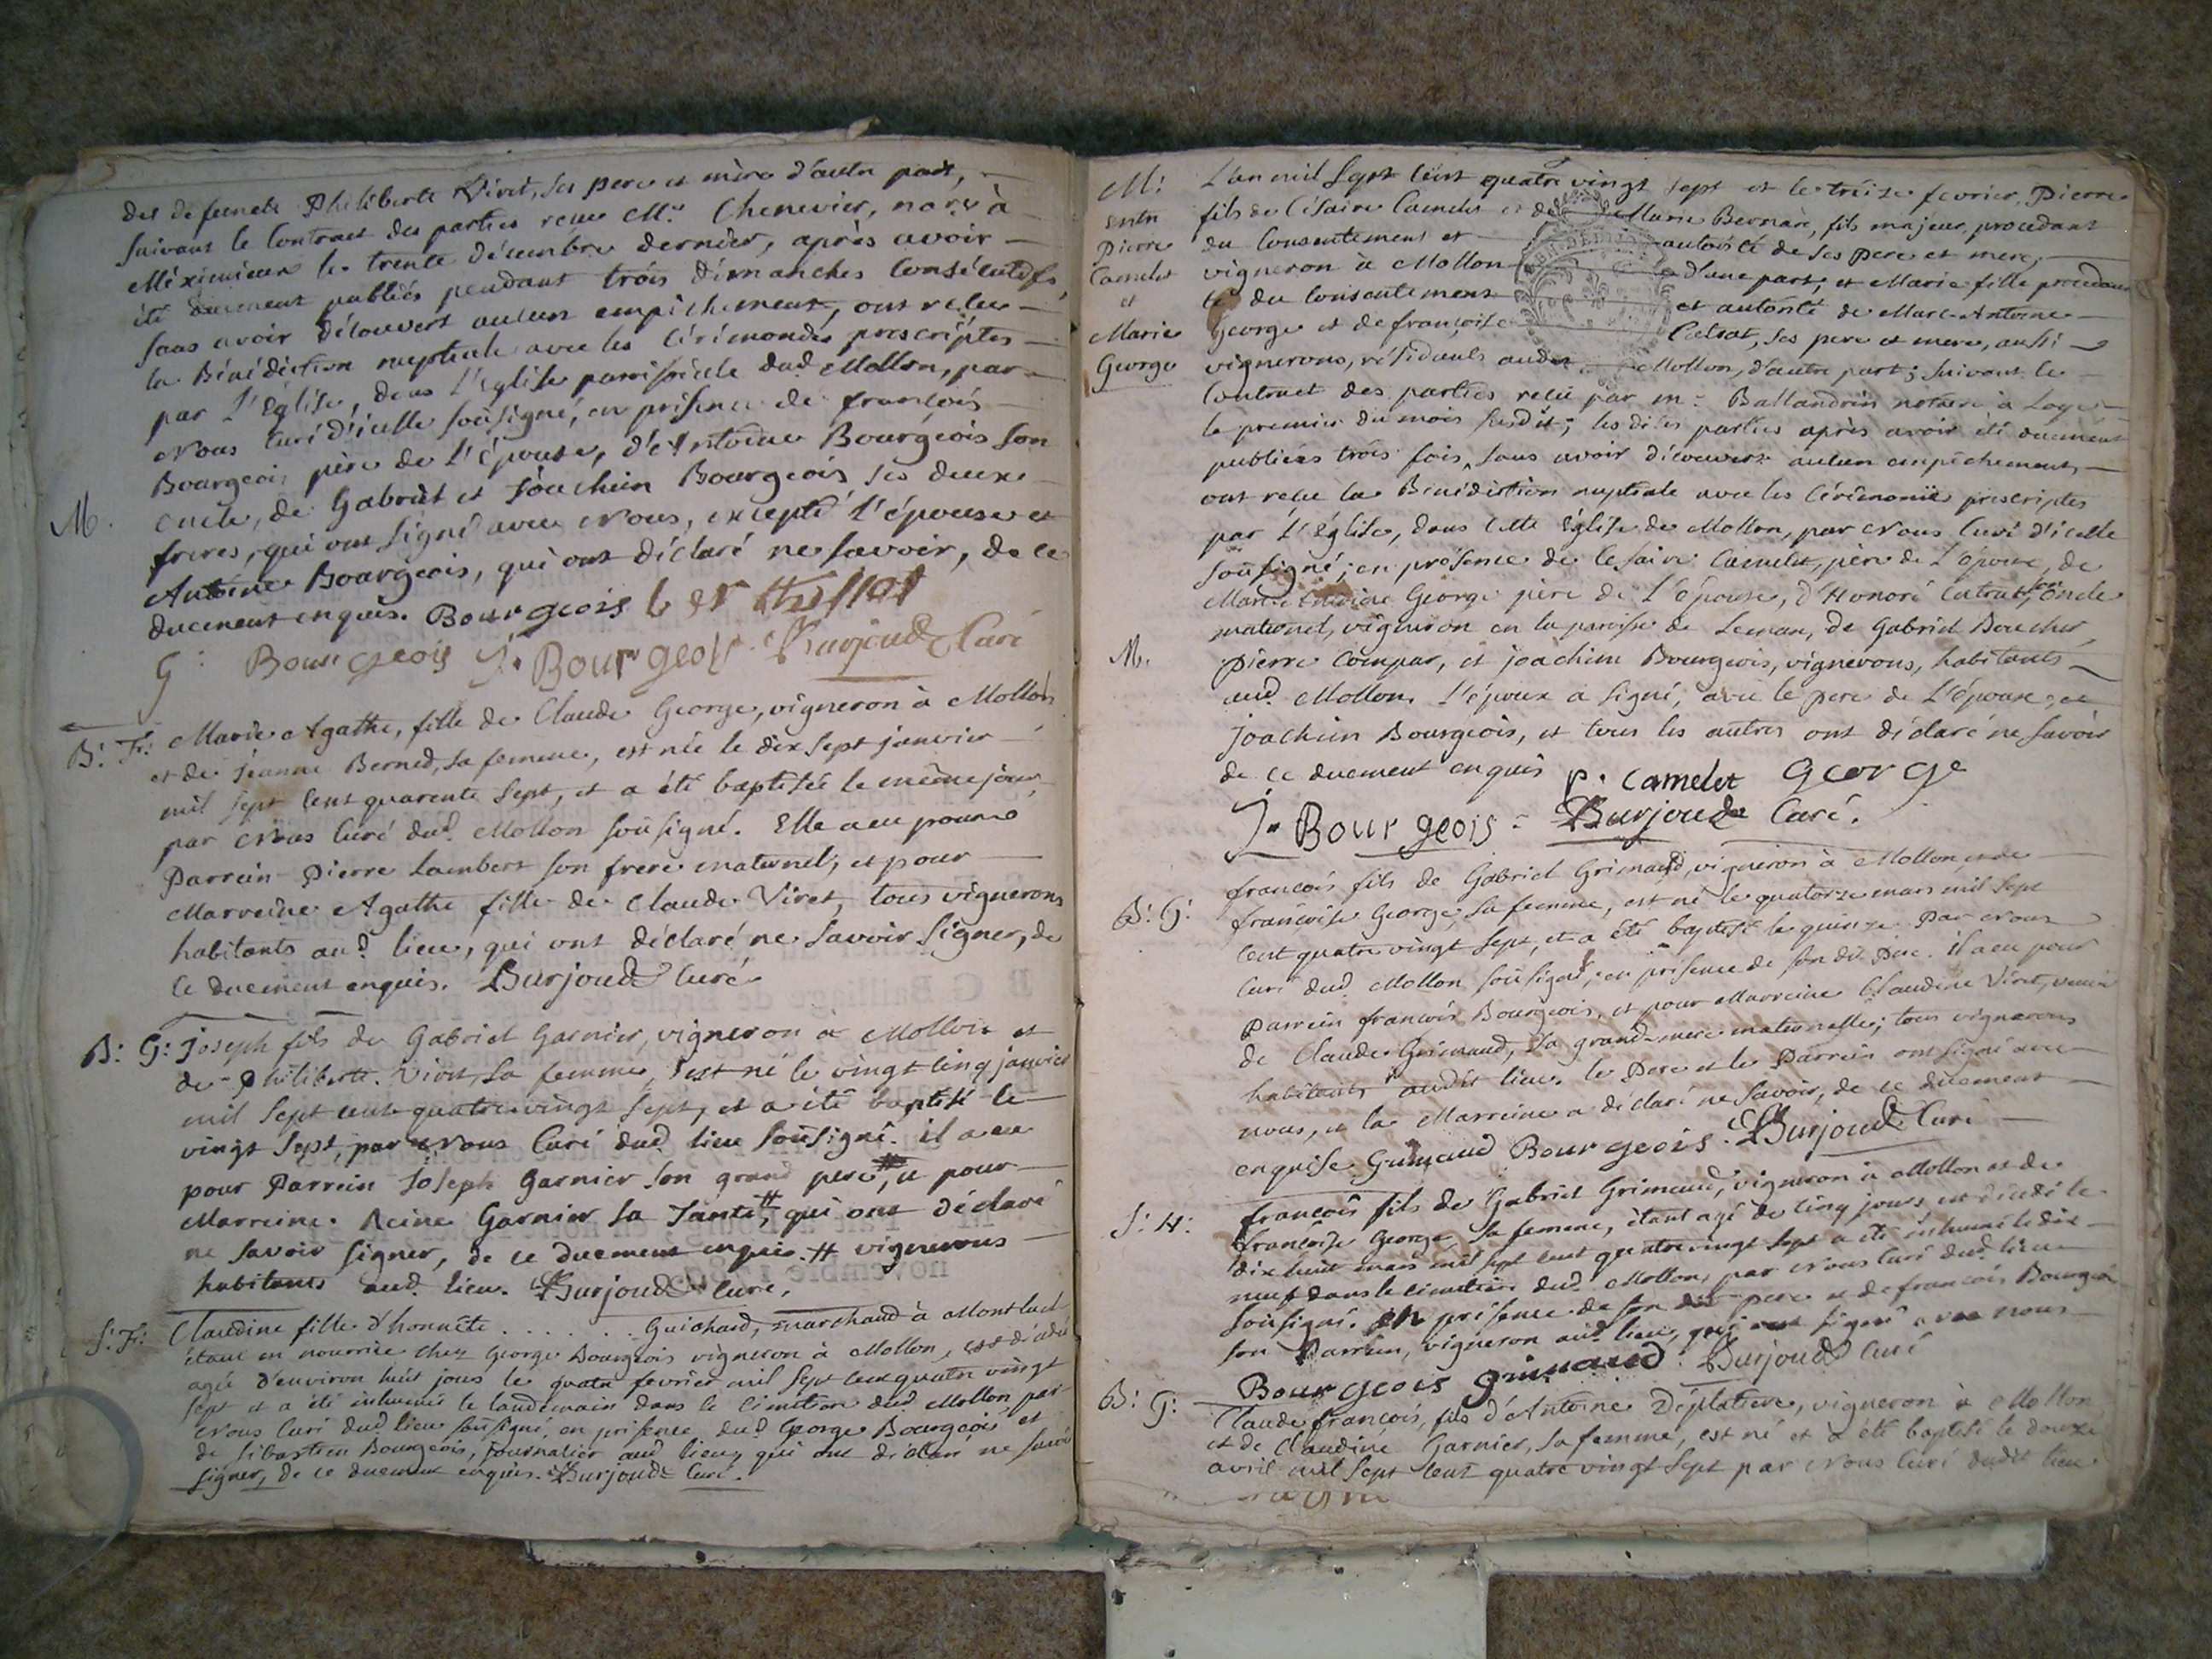 des defuncts Philiberte Viret, ses pere et mère d'autre part,
suivant le Contract des parties reçu Me. Chenevier, nore. à
Méximieux le trente décembre dernier, après avoir
été duement publiés pendant trois dimanches Consécutifs,
sans avoir découvert aucun empêchement, ont reçu
la Bénédiction nuptiale avec les Cérémonies prescriptes
par L'Eglise, dans L'Eglise parroissiale dud. Mollon, par
Nous Curé d'icelle soûsigné, en présence de françois
Bourgeois père de L'épouse, d'Antoine Bourgeois son
M.
oncle, de Gabriel et Joachim Bourgeois ses deux
freres, qui ont signé avec Nous, excepté L'épouse et
Antoine Bourgeois, qui ont déclaré ne savoir, de ce
duement enquis. Bourgeois
G: Bourgeois J. Bourgeois Burjoud Curé
B: F: Marie Agathe, fille de Claude George, vigneron à Mollon
et de Jeanne Berned, sa femme, est née le dix sept janvier
mil sept cent quarente sept, et a été baptisée le même jour,
par Nous Curé dud. Mollon soûsigné. Elle a eu pour
Parrein Pierre Lambert son frere maternel, et pour
Marreine Agathe fille de Claude Viret, tous vignerons
habitants aud. lieu, qui ont déclaré ne savoir signer, de
ce duement enquis. Burjoud Curé
B: G: Joseph fils de Gabriel Garnier, vigneron à Mollon et
de Philiberte Viret, sa femme, est né le vingt cinq janvier
mil sept cent quatre vingt sept, et a été baptisé le
vingt sept, par Nous Curé dud. lieu soûsigné. il a eu
pour Parrein Joseph Garnier son grand pere, et pour
Marreine Reine Garnier sa Tante, # qui ont déclaré
ne savoir signer, de ce duement enquis. # vignerons
habitants aud. lieu. Burjoud Curé,
S: F: Claudine fille d'honnête . . . . . . . Guichard, marchand à Montluel
étant en nourrice chez George Bourgeois vigneron à Mollon, est décédée
agée d'environ huit jours le quatre fevrier mil sept cent quatre vingt
sept et a été inhumée le landemain dans le Cimetiere dud. Mollon par
Nous Curé dud. lieu soûsigné, en présence dud. George Bourgeois et
de Sébastien Bourgeois, journalier aud. lieu, qui ont déclaré ne savoir
signer, de ce duement enquis. Burjoud Curé.
M: L'an mil sept cent quatre vingt sept et le treize fevrier, Pierre
entre
Pierre
Camelet
et
Marie
George
fils de Césaire Camelet et de Marie Bernare, fils majeur, procedant
du Consentement et autorité de ses Pere et mere,
vigneron à Mollon d'une part; et Marie fille procedant
du Consentement et autorité de Marc-Antoine
George et de françoise Catrat, ses pere et mere, aussi
vignerons, résidants audit Mollon, d'autre part; suivant le
Contract des parties reçu par me. Ballandrin notaire à Loye
le premier du mois susdit; les dites parties après avoir été duement
publiées trois fois, sans avoir découvert aucun empêchement,
ont reçu la Bénédiction nuptiale avec les Cérémonies prescriptes
par L'Eglise, dans cette Eglise de Mollon, par Nous Curé d'icelle
soûsigné; en présence de Cesaire Camelet, père de L'époux, de
Marc-Antoine George père de L'épouse, d'Honoré Catrat, son Oncle
maternel, vigneron en la paroisse de Leman, de Gabriel Boucher,
M.
pierre Compar, et joachim Bourgeois, vignerons, habitants
aud. Mollon. L'époux a signé, avec le pere de L'épouse, et
joachim Bourgeois, et tous les autres ont déclaré ne savoir
de ce duement enquis P. Camelet George
J. Bourgeois Burjoud Curé.
B: G: françois fils de Gabriel Grimaud, vigneron à Mollon, et de
françoise George, sa femme, est né le quatorze mars mil sept
cent quatre vingt sept, et a été baptisé le quinze par Nous
Curé dud. Mollon soûsigné, en présence de son dit Pere. il a eu pour
Parrein françois Bourgeois, et pour Marreine Claudine Viret, veuve
de Claude Grimaud, sa grand-mere maternelle; tous vignerons
habitants audit lieu. le Pere et le Parrein ont signé avec
nous, et la Marreine a déclaré ne savoir, de ce duement
enquise Grimaud Bourgeois. Burjoud Curé
S: H: françois fils de Gabriel Grimaud, vigneron à Mollon et de
françoise George, sa femme, étant agé de cinq jours, est décédé le
dix huit mars mil sept cent quatre vingt sept a été inhumé le dix
neuf dans le cimetiere dud. Mollon, par Nous Curé dud. lieu
soûsigné. en présence de son dit pere et de françois Bourgeois
son Parrein, vigneron aud. lieu, qui ont signé avec nous
Bourgeois grimaud. Burjoud Curé
B: G: Claude françois, fils d'Antoine Déplatiere, vigneron à Mollon
et de Claudine Garnier, sa femme, est né et a été baptisé le douze
avril mil sept cent quatre vingt sept par Nous Curé dudit lieu